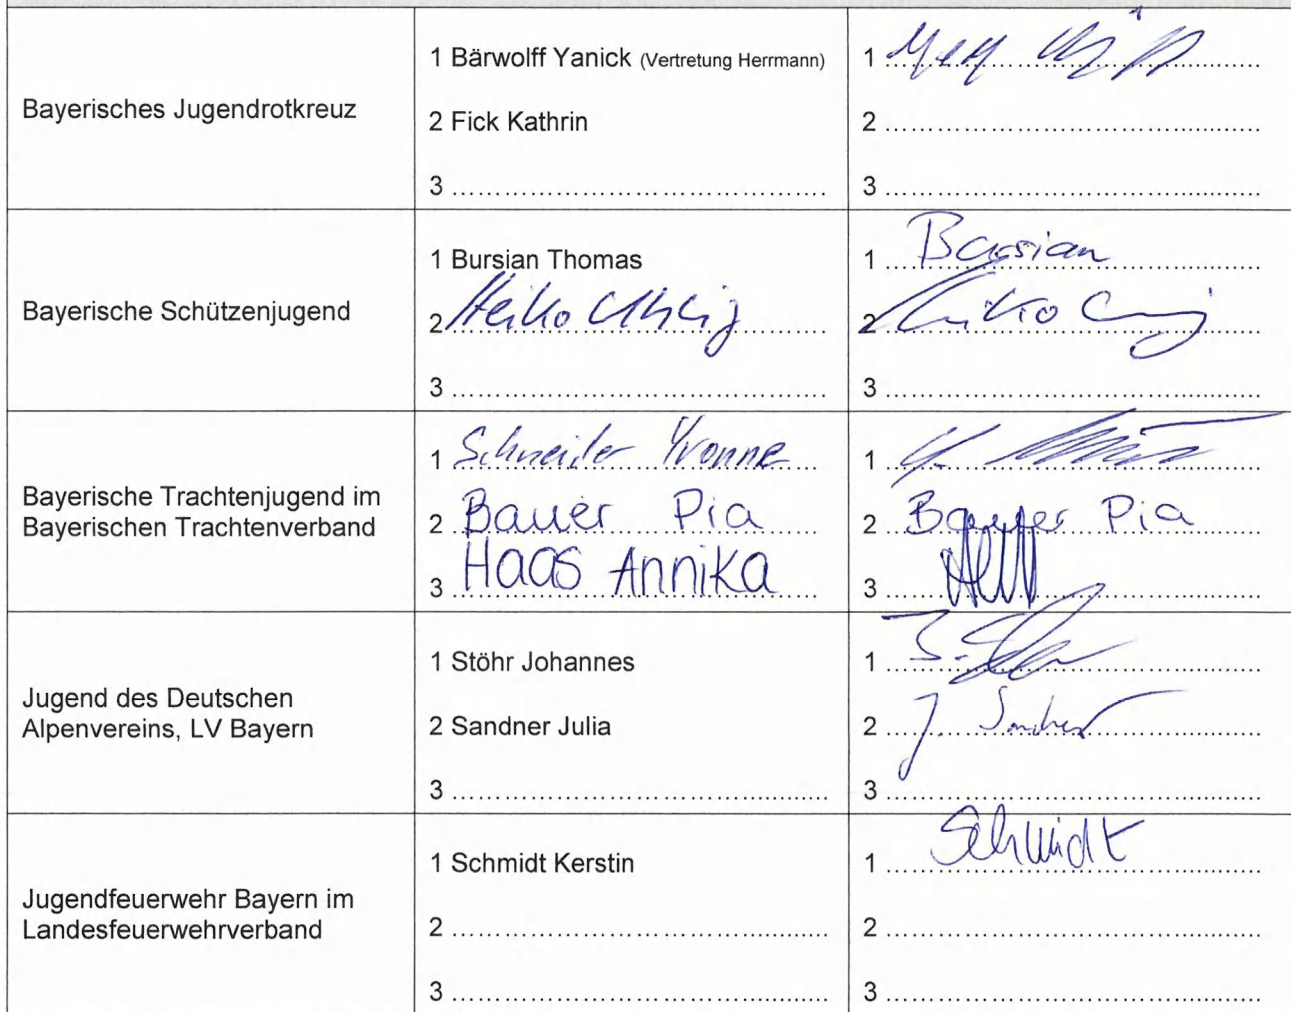 Bayerisches Jugendrotkreuz
1 Bärwolff Yanick (Vertretung Herrmann)
2 Fick Kathrin
3 ....................................
1 ....................................
2 ....................................
3 ....................................
Bayerische Schützenjugend
1 Bursian Thomas
2 Heiko
3 ....................................
1 Bursian
2 Heiko
3 ....................................
Bayerische Trachtenjugend im
Bayerischen Trachtenverband
1 Schneider Yvonne
2 Bauer Pia
3 Haas Annika
1 Y.
2 Bauer Pia
3 ....................................
Jugend des Deutschen
Alpenvereins, LV Bayern
1 Stöhr Johannes
2 Sandner Julia
3 ....................................
1 ....................................
2 J. Sandner
3 ....................................
Jugendfeuerwehr Bayern im
Landesfeuerwehrverband
1 Schmidt Kerstin
2 ....................................
3 ....................................
1 Schmidt
2 ....................................
3 ....................................